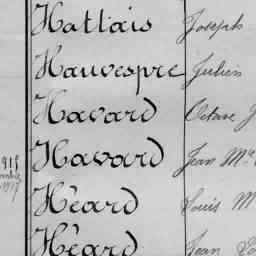 Hattais Joseph
Hauvespre Julien
Havard Octave J
Havard Jean Mie
Héard Louis M
Héard Jean Lo